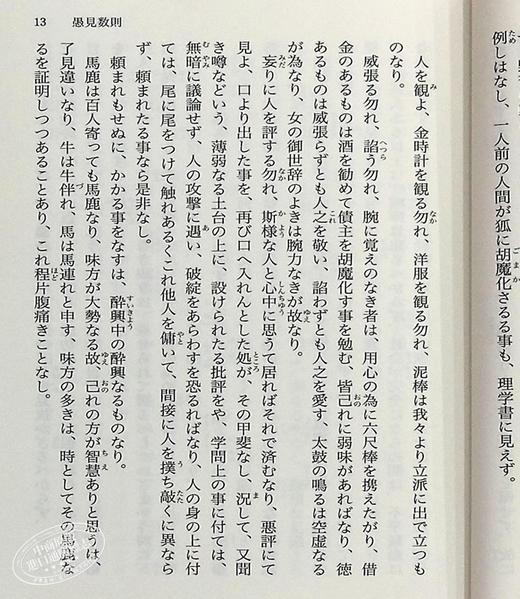 例しはなし、一人前の人間が狐に胡魔化さるる事も、理学書に見えず。
13 愚見数則
人を観よ、金時計を観る勿れ、洋服を観る勿れ、泥棒は我々より立派に出で立つも
のなり。
威張る勿れ、諂う勿れ、腕に覚えのなき者は、用心の為に六尺棒を携えたがり、借
金のあるものは酒を勧めて債主を胡魔化す事を勉む、皆己れに弱味があればなり、徳
あるものは威張らずとも人之を敬い、諂わずとも人之を愛す、太鼓の鳴るは空虚なる
が為なり、女の御世辞のよきは腕力なきが故なり。
妄りに人を評する勿れ、斯様な人と心中に思うて居ればそれで済むなり、悪評にて
見よ、口より出した事を、再び口へ入れんとした処が、その甲斐なし、況して、又聞
き噂などいう、薄弱なる土台の上に、設けられたる批評をや、学問上の事に付ては、
無暗に議論せず、人の攻撃に遇い、破綻をあらわすを恐るればなり、人の身の上に付
ては、尾に尾をつけて触れあるくこれ他人を傭いて、間接に人を撲ち敲くに異なら
ず、頼まれたる事なら是非なし。
頼まれもせぬに、かかる事をなすは、酔興中の酔興なるものなり。
馬鹿は百人寄っても馬鹿なり、味方が大勢なる故、己れの方が智慧ありと思うは、
了見違いなり、牛は牛伴れ、馬は馬連れと申す、味方の多きは、時としてその馬鹿な
るを証明しつつあることあり、これ程片腹痛きことなし。